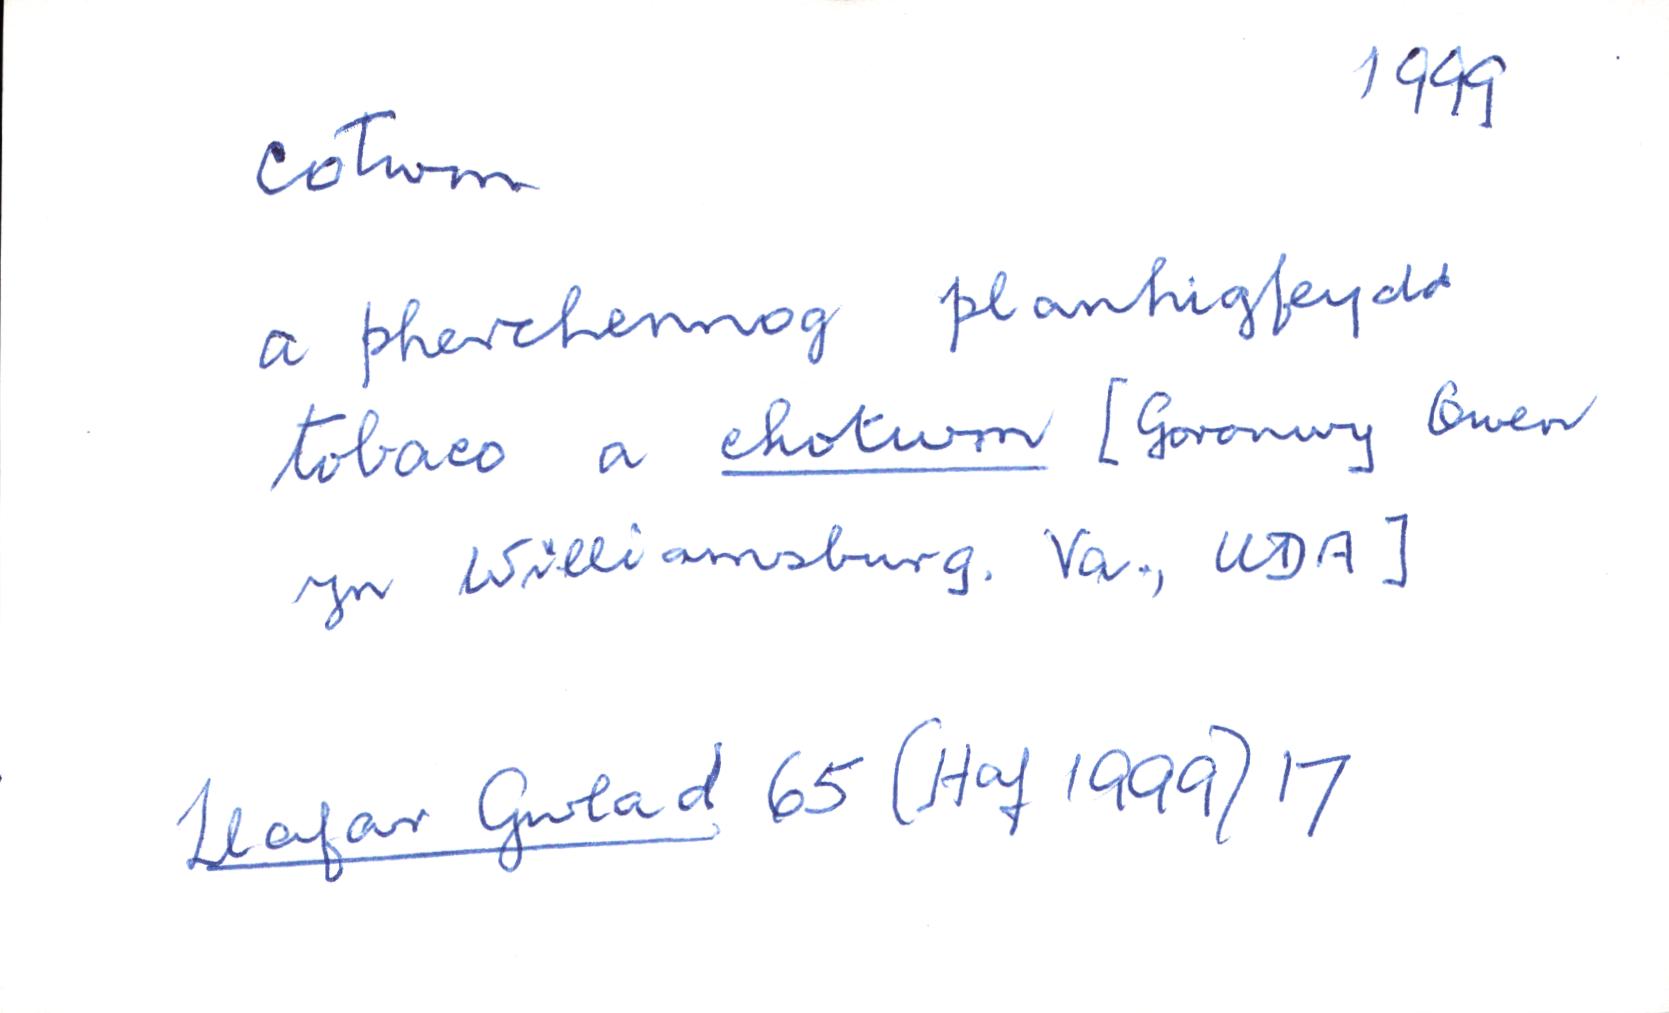 1999
cotwm
a pherchennog planhigfeydd
tobaco a chotwm [Goronwy Owen
yn Williamsburg, Va., UDA]
Llafar Gwlad 65 (Haf 1999) 17